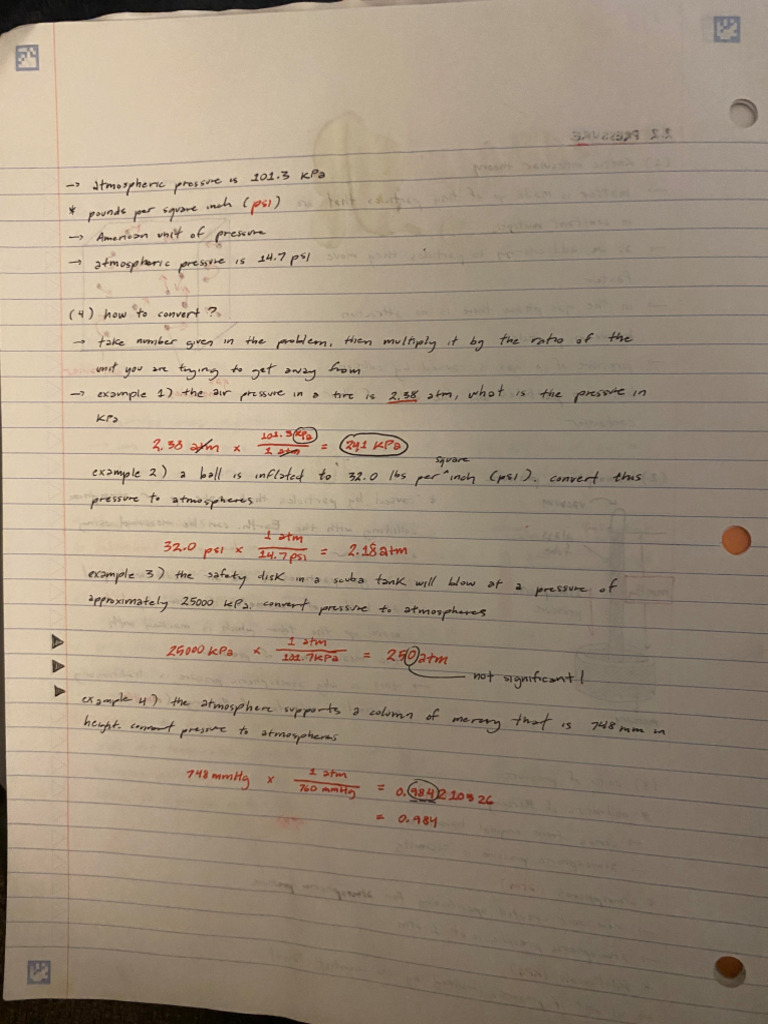 2.2 PRESSURE
→ atmospheric pressure is 101.3 kPa
* pounds per square inch (psi)
→ American unit of pressure
→ atmospheric pressure is 14.7 psi
(4) how to convert?
→ take number given in the problem, then multiply it by the ratio of the
unit you are trying to get away from
→ example 1) the air pressure in a tire is 2.38 atm, what is the pressure in
KPa
2.38 atm × 101.3 KPa / 1 atm = 241 KPa
example 2) a ball is inflated to 32.0 lbs per ^square inch (psi). convert this
pressure to atmospheres
32.0 psi × 1 atm / 14.7 psi = 2.18 atm
example 3) the safety disk in a scuba tank will blow at a pressure of
approximately 25000 kPa. convert pressure to atmospheres
25000 kPa × 1 atm / 101.7 kPa = 250 atm
not significant!
example 4) the atmosphere supports a column of mercury that is 748 mm in
height. convert pressure to atmospheres
748 mmHg × 1 atm / 760 mmHg = 0.984210526
= 0.984